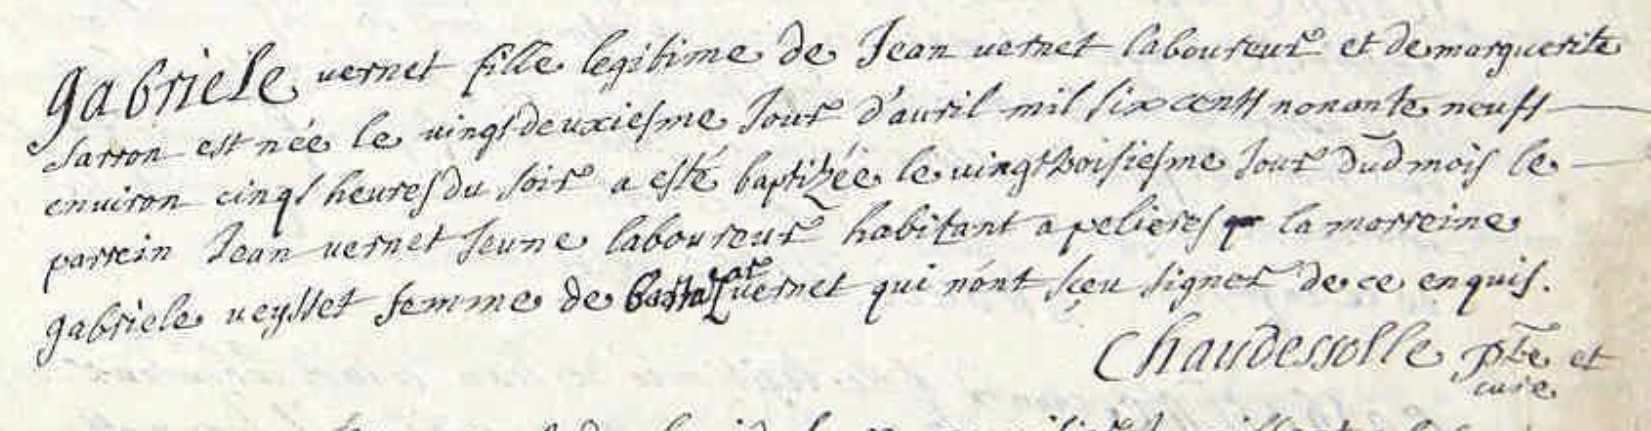 Gabriele vernet fille legitime de Jean vernet laboureur et de marguerite
sarron est née le vingtdeuxiesme Jour d'avril mil six cents nonante neuff
environ cinqs heures du soir a esté baptizée le vingtroisiesme Jour dud mois le
parrein Jean vernet Jeune laboureur habitant a pelieres la marreine
gabriele veysset femme de vernet qui n'ont sçeu signer de ce enquis.
Chaudessolle ptre et
curé